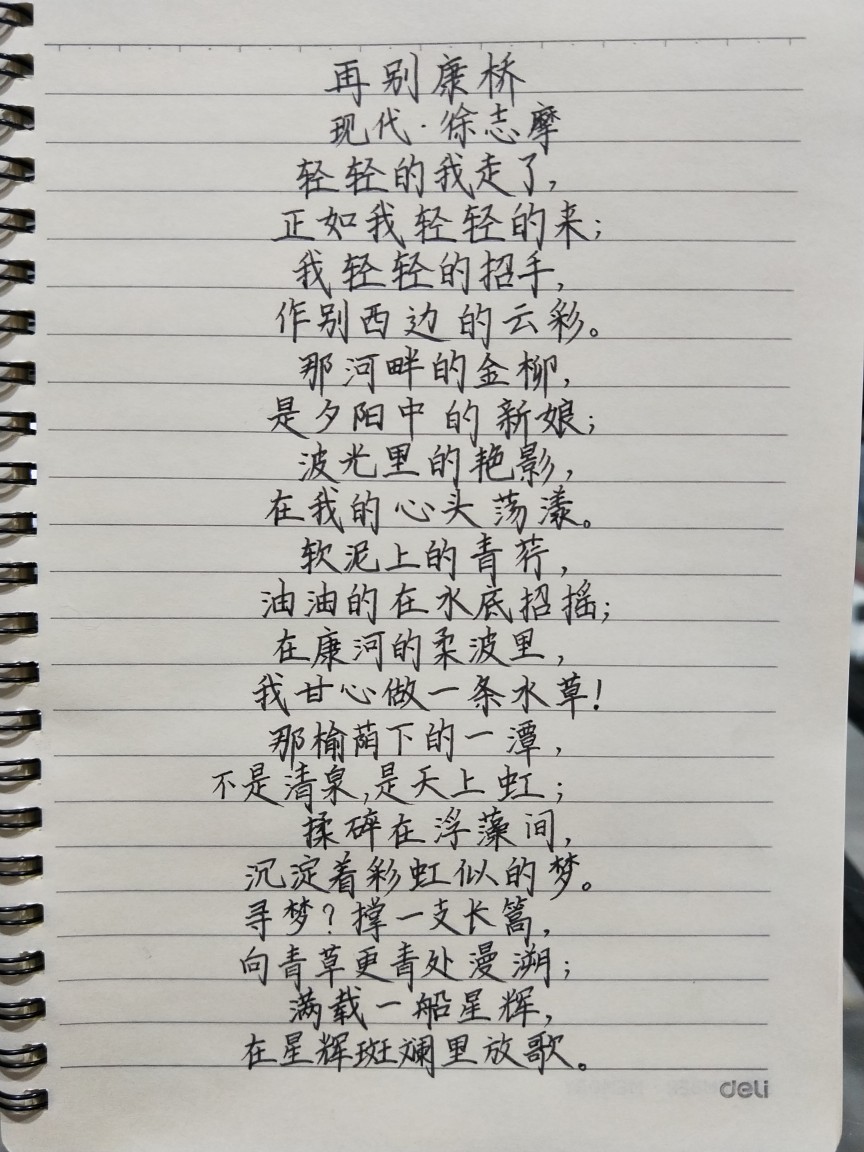 再别康桥
现代·徐志摩
轻轻的我走了,
正如我轻轻的来;
我轻轻的招手,
作别西边的云彩。
那河畔的金柳,
是夕阳中的新娘;
波光里的艳影,
在我的心头荡漾。
软泥上的青荇,
油油的在水底招摇;
在康河的柔波里,
我甘心做一条水草!
那榆荫下的一潭,
不是清泉,是天上虹;
揉碎在浮藻间,
沉淀着彩虹似的梦。
寻梦?撑一支长篙,
向青草更青处漫溯;
满载一船星辉,
在星辉斑斓里放歌。
deli